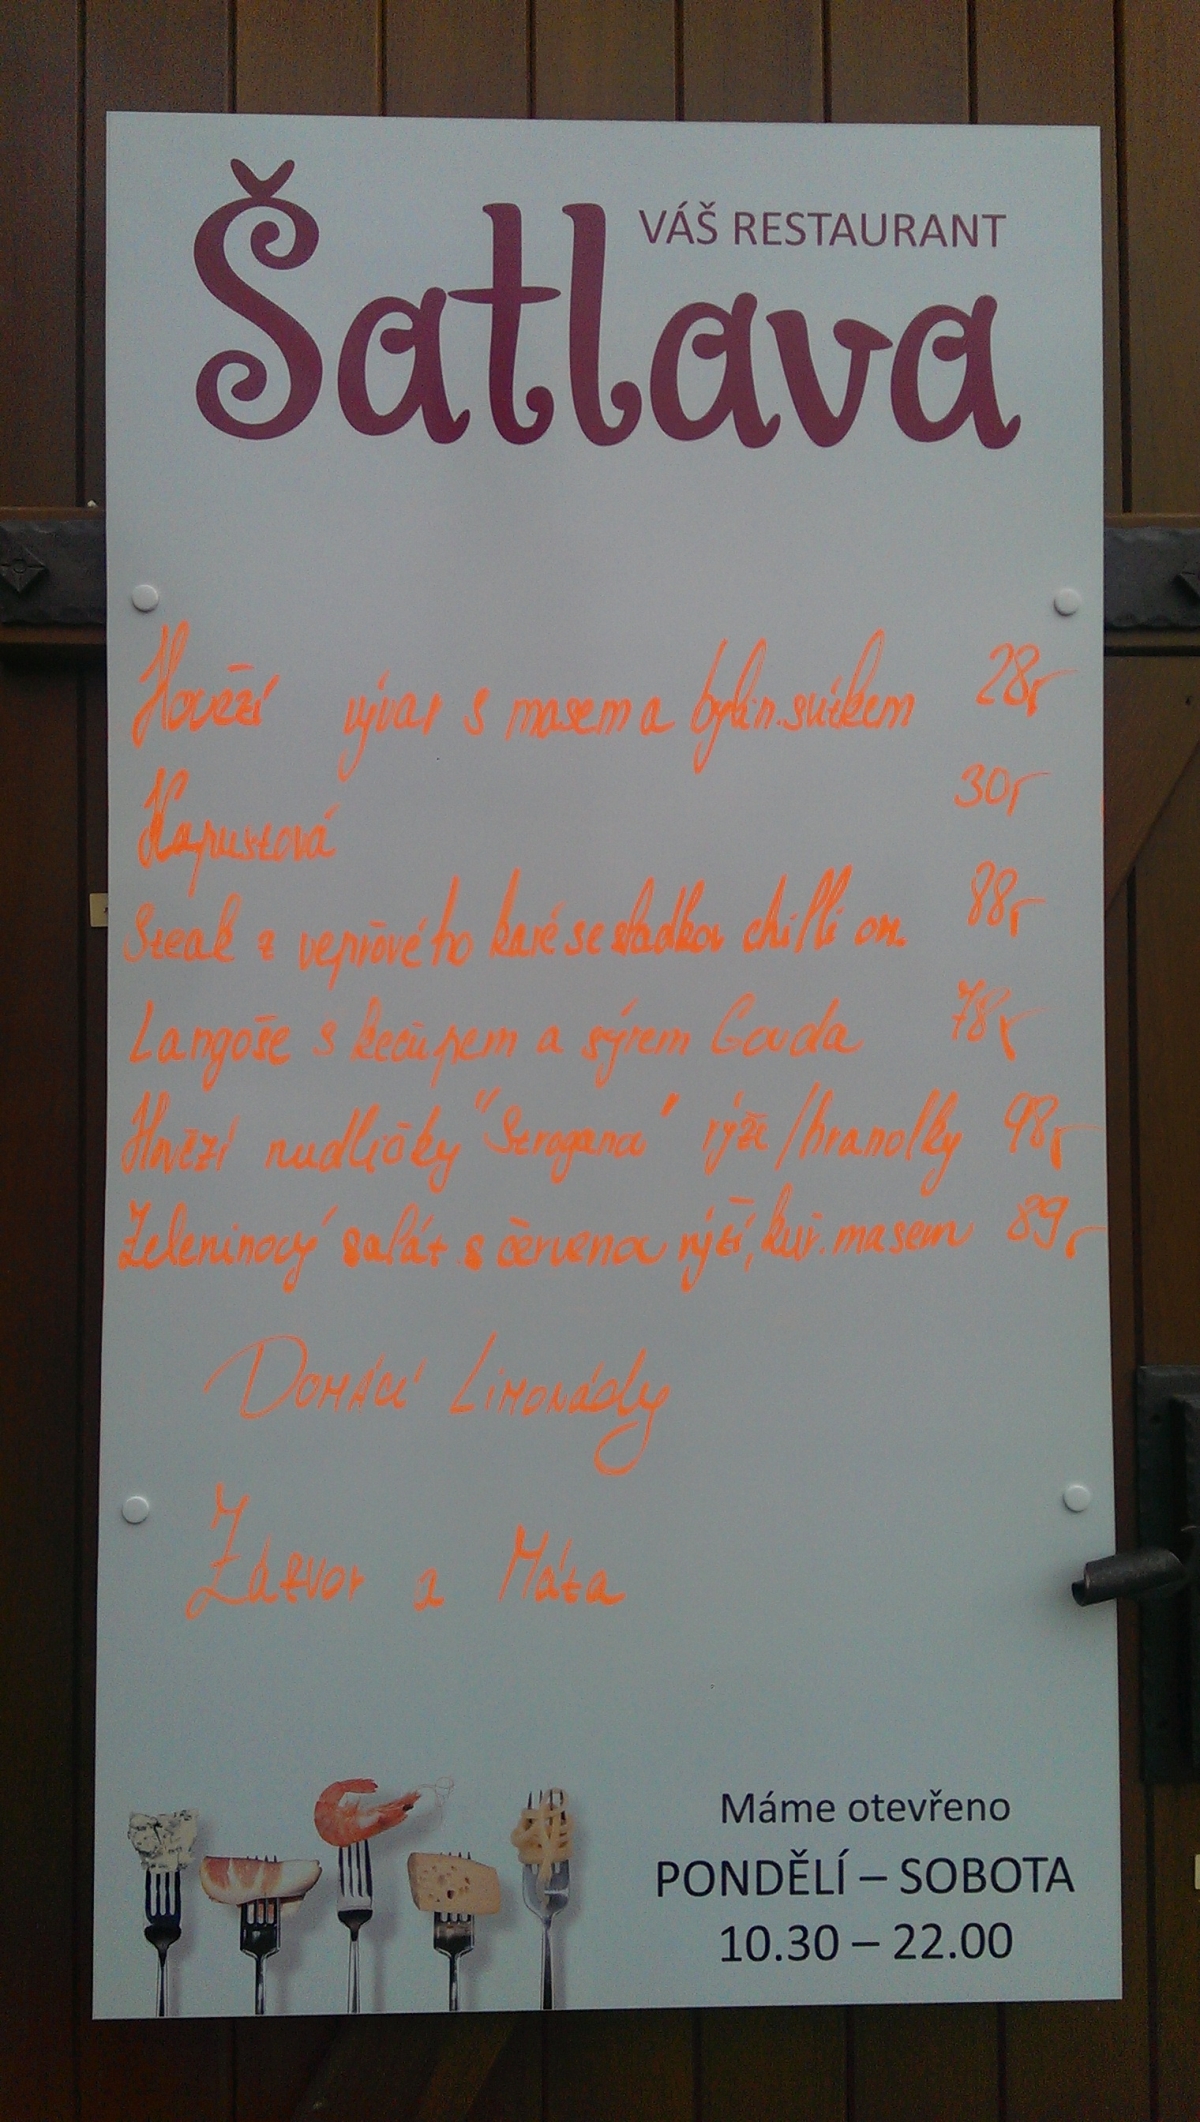 VÁŠ RESTAURANT
Šatlava
Hovězí vývar s masem a bylin. svítkem 28,-
Kapustová 30,-
Steak z vepřového karé se sladkou chilli om. 88,-
Langoše s kečupem a sýrem Gouda 78,-
Hovězí nudličky "Stroganov" rýže/hranolky 98,-
Zeleninový salát s červenou rýží, kuř. masem 89,-
Domácí Limonády
Zázvor a Máta
Máme otevřeno
PONDĚLÍ – SOBOTA
10.30 – 22.00